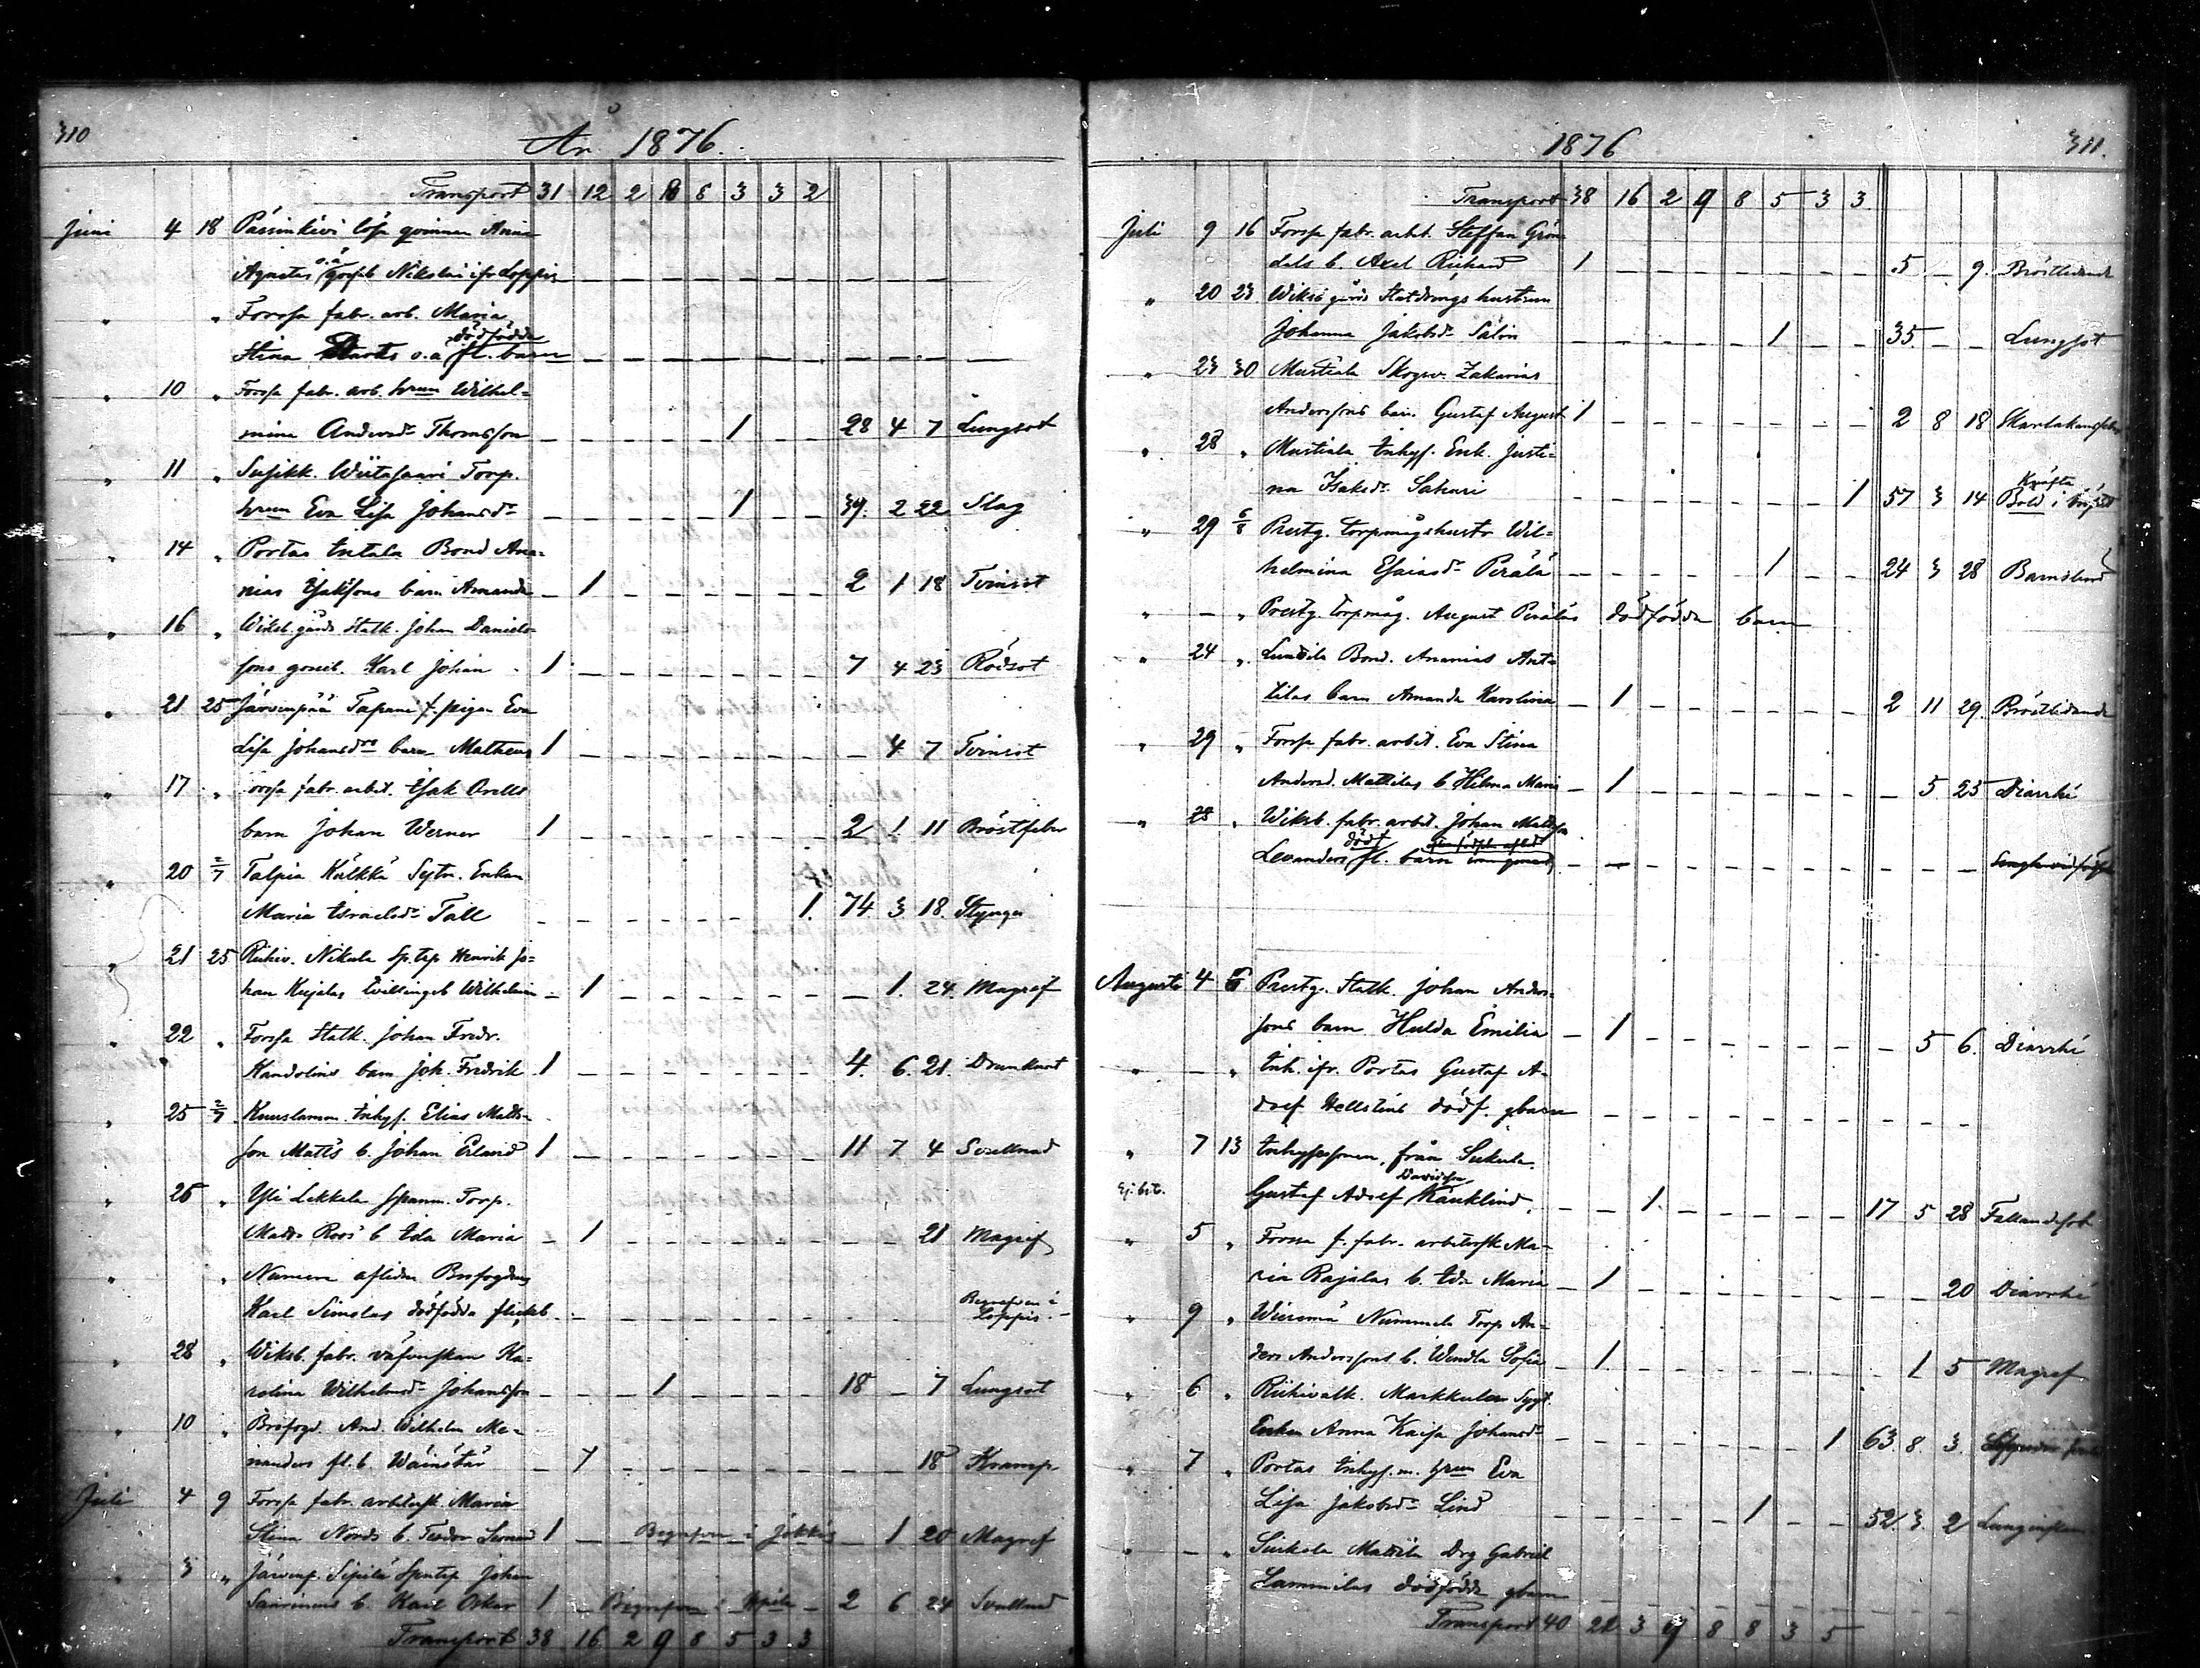 310
År 1876.
Transport 31 12 2 8 8 3 3 2
Juni 4 18 Päisinkivi lösa qvinnan Anna
Agnetas o.ä gosseb Nikolai ifr Loppis
" " Forssa fabr. arb. Maria
Stina o.ä dödfödda fl. barn
" 10 " Forssa fabr. arb. hrun Wilhel-
mina Andersdr Thomsson 1 28 4 7 Lungsot
" 11 " Susikk. Wiitasaari Torp.
hrun Eva Lisa Johansdr 1 39. 2 22 Slag
" 14 " Portas Intala Bond Ana-
nias Isakssons barn Amanda 1 2 1 18 Tvinsot
" 16 " Wiksb. gårds Statk. Johan Daniels-
sons gosseb. Karl Johan 1 7 4 23 Rödsot
" 21 25 Järvenpää Tapani f. pigan Eva
Lisa Johansdrs barn Matheus 1 4 7 Tvinsot
" 17 " Forssa fabr. arbet. Isak Orells
barn Johan Werner 1 2 1 11 Bröstfeber
" 20 2/7 Talpia Kälkkä Sytn. Enkan
Maria Israelsdr Tall 1. 74. 3 18. Stynga
" 21 25 Riihiv. Nikula Sp.tp Henrik Jo-
han Kujalas tvillingeb Wilhelm 1 1. 24. Magref
" 22 " Forssa Statk. Johan Fredr.
Kandolins barn Joh. Fredrik 1 4. 6. 21. Drunknat
" 25 2/7 Kuuslamm. Inhys. Elias Matts-
son Matts b. Johan Edvard 1 11 7 4 Svullnad
" 26 " Yli Lekkala Spanm. Torp.
Matts Roos b Ida Maria 1 21 Magref
" " Numera aflidne Brofogdens
Karl Simolas dödfödda flickb. Begrafven i Loppis.
" 28 " Wiksb. fabr. väfverskan Ka-
rolina Wilhelmsdr Johansson 1 18 7 Lungsot
" 10 " Brofogd. And. Wilhelm Me-
nanders fl. b. 1 18 Kramp
Juli 4 9 Forssa fabr. arbetersk Maria
Stina Nords b. Teodor 1 Begrafven i Jokkis 1 20 Magref
" 3 " Järvenp. Sipilä Spntp Johan
b. Karl Oskar 1 Begrafven i 2 6 24 Svullnad
Transport 38 16 2 9 8 5 3 3
1876 311.
Transport 38 16 2 9 8 5 3 3
Juli 9 16 Forssa fabr. arbt. Steffan Grön
dals b. Axel Richard 1 5 9. Bröstlidande
" 20 23 Wiksb. gårds Statdrängs hustrun
Johanna Jakobsdr Salin 1 35 Lungsot
" 23 30 Mustiala Skogsv. Zakarias
Anderssons barn Gustaf August 1 2 8 18 Skarlakansfeber
" 28 " Mustiala Inhys. Enk. Justi-
na Isaksdr Sahari 1 57 3 14 Kräfta
" 29 6/8 Prestg. torpmågshustr Wil-
helmina Esaiasdr Perälä 1 24 3 28 Barnsbörd
" " Prestg. torpmåg. August Peräläs dödfödda barn
" 24 " Bond. Ananias Ant-
tilas barn Amanda Karolina 1 2 11 29. Bröstlidande
" 29 " Forssa fabr. arbet. Eva Stina
Andersd. Mattilas b Hilma Maria 1 5 25 Diarrhé
" 28 " Wiksb. fabr. arbet. Johan Mattsson
Levanders död f. fl. barn
Augusti 4 6 Prestg. Statk. Johan Anders-
sons barn Hulda Emilia 1 5 6. Diarrhé
" " Inh. ifr. Portas Gustaf A-
dolf Hellstens dödf. gbarn
" 7 13 Inhysesonen, från Sukula
Ej bet. Gustaf Adolf Davidson 1 17 5 28 Fallandesot
" 5 " Forssa f. fabr. arbetersk Ma-
ria Rajalas b. Ida Maria 1 20 Diarrhé
" 9 " Nummela Torp An-
ders Anderssons b. Wendla Sofia 1 1 5 Magref
" 6 " Riihivalk. Markkula Sygt.
Enkan Anna Kaisa Johansdr 1 63 8. 3.
" 7 " Portas Inhys. m. hrun Eva
Lisa Jakobsdr Lind 1 52. 3. 2
" " Mattila Drg Gabriel
Lammilas dödfödde gbarn
Transport 40 22 3 9 8 8 3 5